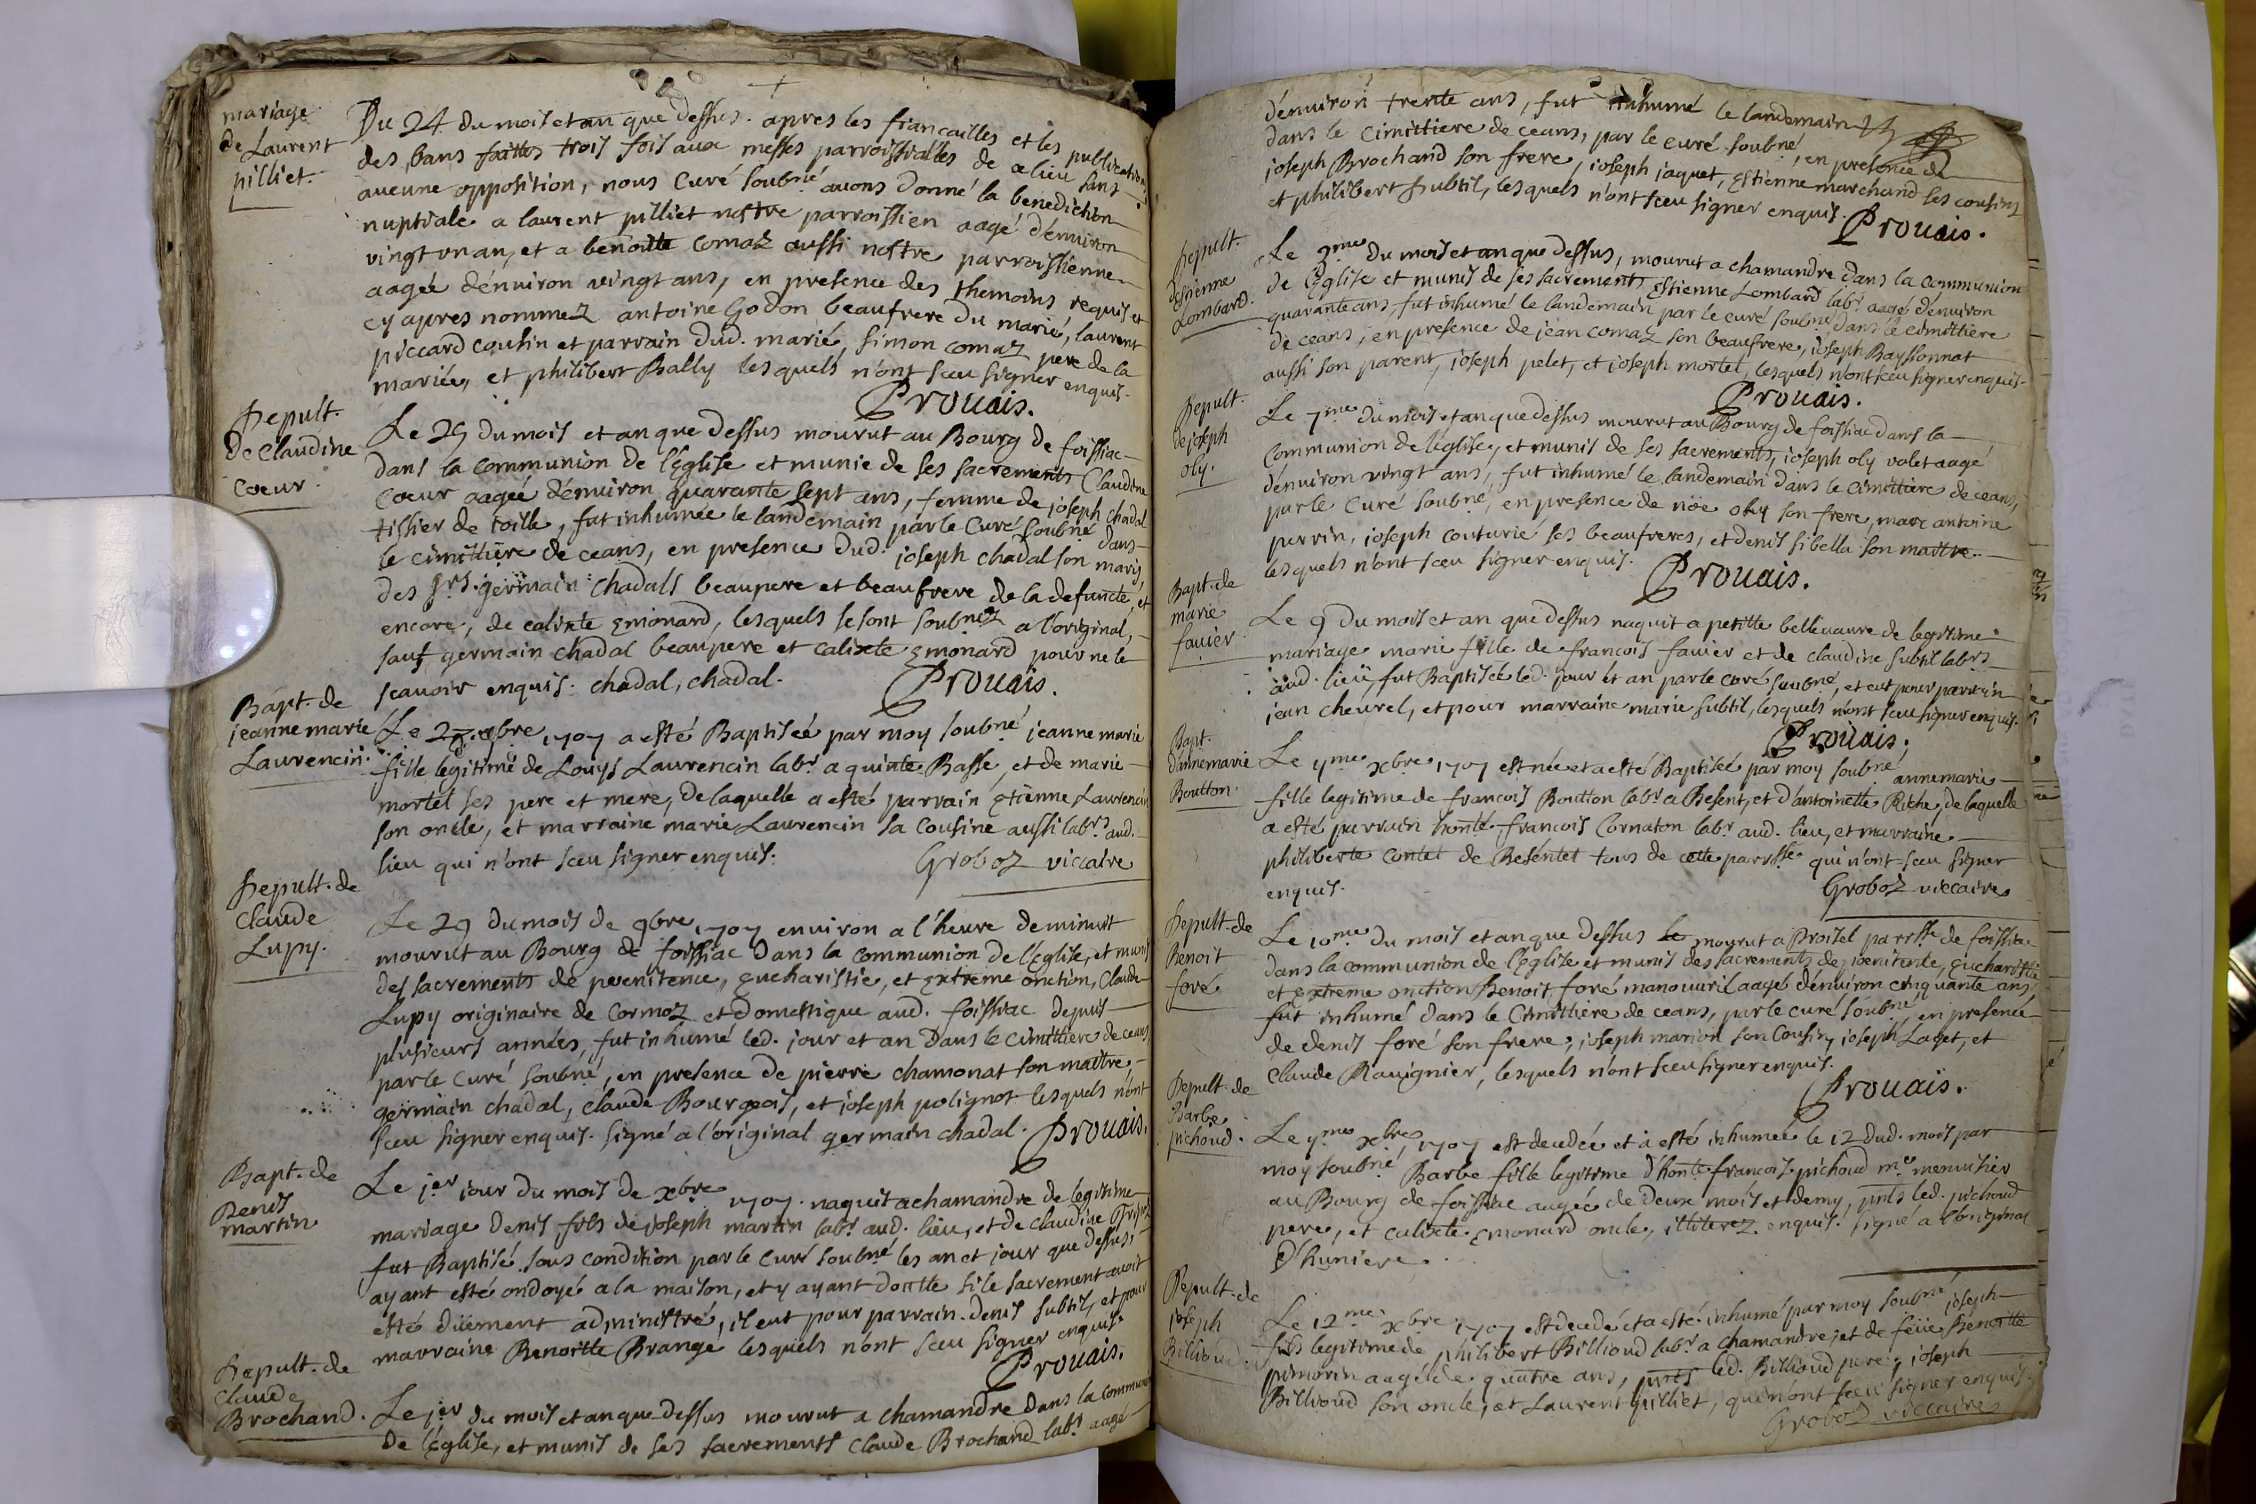 mariage
de Laurent
pilliet.
Du 24 du mois et an que dessus. apres les fiancailles et les publications
des bans faittes trois fois aux messes parroissialles de ce lieu sans
aucune opposition, nous Curé soubné avons donné la benediction
nuptiale a laurent pilliet nostre parroissien aagé d'environ
vingt un an, et a benoitte comaz aussi nostre parroissienne
aagée d'environ vingt ans, en presence des themoins requis et
cy apres nommez antoine Godon beaufrere du marié, laurent
piccard cousin et parrain dud. marié, simon comaz pere de la
mariée, et philibert Bally lesquels n'ont sceu signer enquis.
Prouais.
sepult.
de Claudine
Coeur.
Le 25 du mois et an que dessus mourut au Bourg de foissiac
dans la communion de l'Eglise et munie de ses sacrements Claudine
Coeur aagée d'environ quarante sept ans, femme de joseph chadal
tissier de toille, fut inhumée le landemain par le Curé soubné dans
le cimittiere de ceans, en presence dud. joseph chadal son mary,
des srs. germain chadals beaupere et beaufrere de la defuncte, et
encore, de calixte Emonard, lesquels se sont soubnez a l'original,
sauf germain chadal beaupere et calixte Emonard pour ne le
scavoir enquis. chadal, chadal.
Prouais.
Bapt. de
jeanne marie
Laurencin.
Le 27. 9bre 1707 a esté Baptisée par moy soubné jeanne marie
fille legitime de Louys Laurencin labr. a quinte Basse, et de marie
mortel ses pere et mere, de laquelle a esté parrain Etienne Laurencin
son oncle, et marraine marie Laurencin sa cousine aussi labrs. aud.
lieu qui n'ont sceu signer enquis.
Groboz viccaire
sepult. de
Claude
Lupy.
Le 29 du mois de 9bre 1707 environ a l'heure de minuit
mourut au Bourg de foissiac dans la communion de l'Eglise, et munis
des sacrements de poenitence, Eucharistie, et extreme onction, Claude
Lupy originaire de Cormoz et domestique aud. foissiac depuis
plusieurs années, fut inhumé led. jour et an dans le cimittiere de ceans,
par le Curé soubné, en presence de pierre chamonat son maître,
germain chadal, Claude Bourgeois, et joseph polignot lesquels n'ont
sceu signer enquis. signé a l'original germain chadal.
Prouais.
Bapt. de
Denis
martin
Le jer jour du mois de xbre 1707. naquit a chamandre de legitime
mariage denis fils de joseph martin labr. aud. lieu, et de claudine
fut Baptisé sous condition par le Curé soubné les an et jour que dessus,
ayant esté ondoyé a la maison, et y ayant doutte si le sacrement avoit
esté düement administré, il eut pour parrain denis subtil, et pour
marraine Benoitte Brange lesquels n'ont sceu signer enquis.
Prouais.
sepult. de
Claude
Brochand.
Le jer du mois et an que dessus mourut a chamandre dans la communion
de l'Eglise, et munis de ses sacrements Claude Brochand labr. aagé
d'environ trente ans, fut inhumé le landemain
dans le Cimittiere de ceans, par le curé soubné, en presence de
joseph Brochand son frere, joseph jaquet, Estienne marchand ses cousins
et philibert subtil, lesquels n'ont sceu signer enquis.
Prouais.
sepult.
d'Estienne
Lombard.
Le 3me du mois et an que dessus, mourut a chamandre dans la communion
de l'Eglise et munis de ses sacrements Estienne Lombard labr. aagé d'environ
quarante ans, fut inhumé le landemain par le curé soubné dans le cimittiere
de ceans, en presence de jean comaz son beaufrere, joseph Bayssonnat
aussi son parent, joseph pelet, et joseph mortel, lesquels n'ont sceu signer enquis.
Prouais.
sepult.
de joseph
oly.
Le 7me du mois et an que dessus mourut au Bourg de foissiac dans la
Communion de l'Eglise, et munis de ses sacrements, joseph oly valet aagé
d'environ vingt ans, fut inhumé le landemain dans le Cimittiere de ceans,
par le Curé soubné, en presence de nöe oly son frere, marc antoine
perrin, joseph couturié ses beaufreres, et denis sibella son maître
lesquels n'ont sceu signer enquis.
Prouais.
Bapt. de
marie
favier
Le 9 du mois et an que dessus naquit a petitte bellevavre de legitime
mariage marie fille de francois favier et de claudine subtil labrs
aud. lieu, fut Baptisée led. jour et an par le curé soubné, et eut pour parrain
jean cheurel, et pour marraine marie subtil, lesquels n'ont sceu signer enquis.
Prouais.
Bapt.
d'annemarie
Boutton.
Le xbre 1707 est née et a esté Baptisée par moy soubné annemarie
fille legitime de francois Boutton labr. a Besent, et d'antoinette Riche, de laquelle
a esté parrain honté. francois Cornaton labr. aud. lieu, et marraine
philiberte contet de Besentet tous de cette parrsse. qui n'ont sceu signer
enquis.
Groboz viccaire
sepult. de
Benoit
foré.
Le 10me du mois et an que dessus mourut a Broisel parrsse. de foissiac
dans la communion de l'Eglise et munis des sacrements de poenitente, Eucharistie
et extreme onction Benoit foré manouvril aagé d'environ cinquante ans
fut inhumé dans le Cimittiere de ceans, par le curé soubné, en presence
de denis foré son frere, joseph marion son Cousin, joseph Laget, et
Claude Ravignier, lesquels n'ont sceu signer enquis.
Prouais.
Sepult. de
Barbe
pichoud.
Le xbre 1707 est decedée et a esté inhumée le 12 dud. mois par
moy soubné, Barbe fille legitime d'honte. francois pichoud me. menuisier
au Bourg de foissiac aagée de deux mois et demy, pnts led. pichoud
pere, et calixte Emonard oncle, illiterez enquis. signé a l'original
D'huniere.
Sepult. de
joseph
Billioud.
Le 12me. xbre 1707 est decedé et a esté inhumé par moy soubné joseph
fils legitime de philibert Billioud labr. a chamandre, et de feüe Benoitte
pimorin aagé de quattre ans, pnts led. Billioud pere, joseph
Billioud son oncle, et Laurent pilliet, qui n'ont sceu signer enquis.
Groboz viccaire